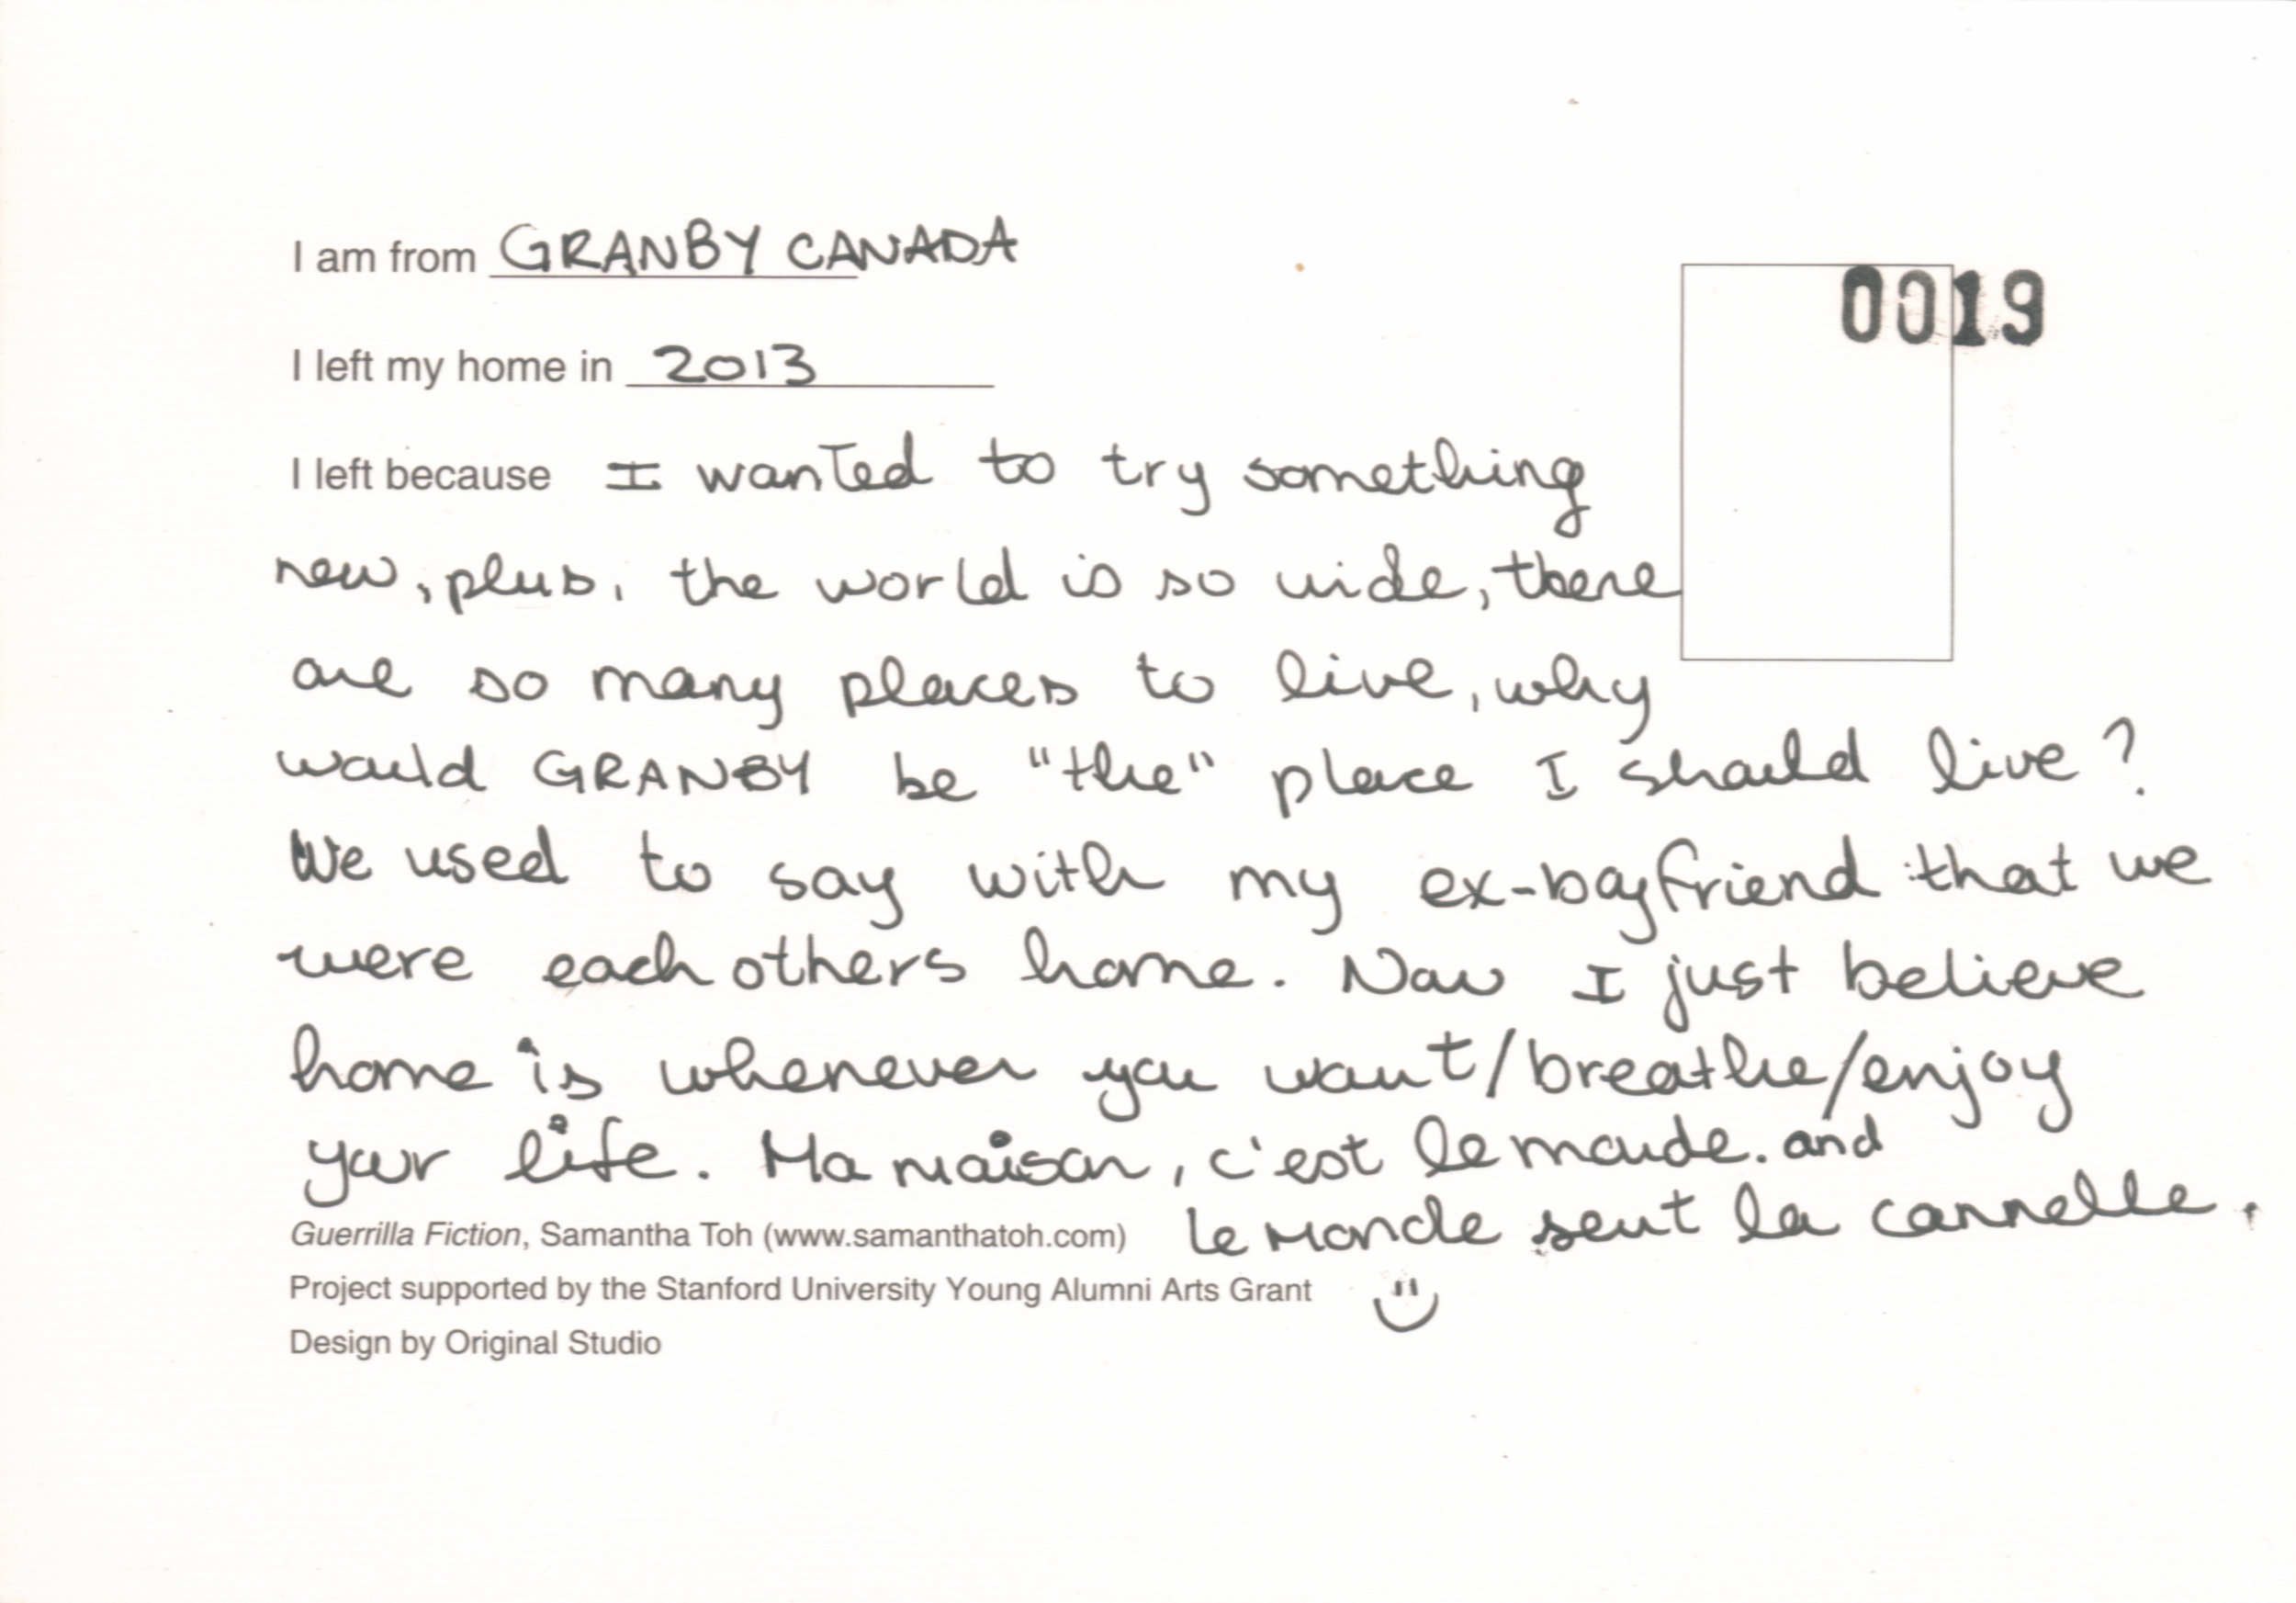 I am from GRANBY CANADA
0019
I left my home in 2013
I left because I wanted to try something
new, plus, the world is so wide, there
are so many places to live, why
would GRANBY be "the" place I should live?
We used to say with my ex-boyfriend that we
were each others home. Now I just believe
home is whenever you want/breathe/enjoy
your life. Ma maison, c'est le monde. and
le monde sent la cannelle.
Guerrilla Fiction, Samantha Toh (www.samanthatoh.com)
Project supported by the Stanford University Young Alumni Arts Grant
Design by Original Studio